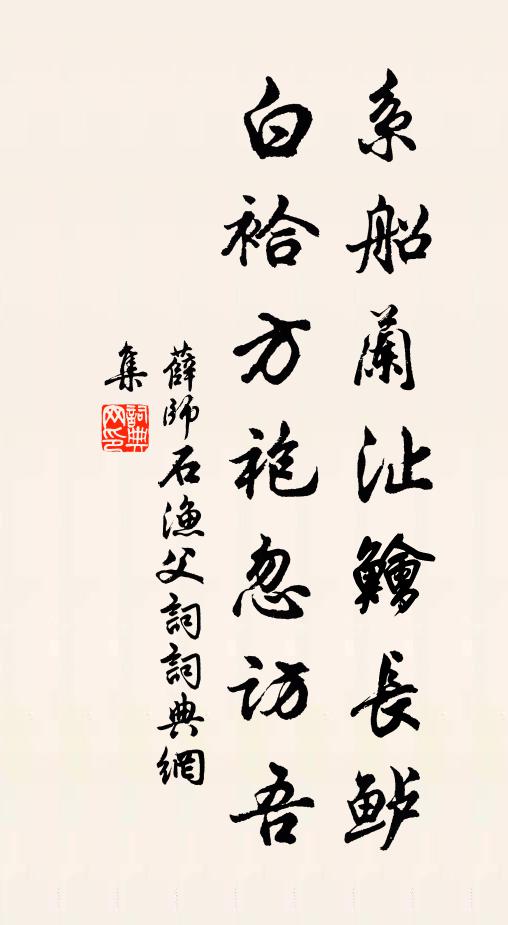 系船蘭沚鱠長鲈
白袷方袍忽訪吾
薛師石漁父詞詞典網
集
詞典網印